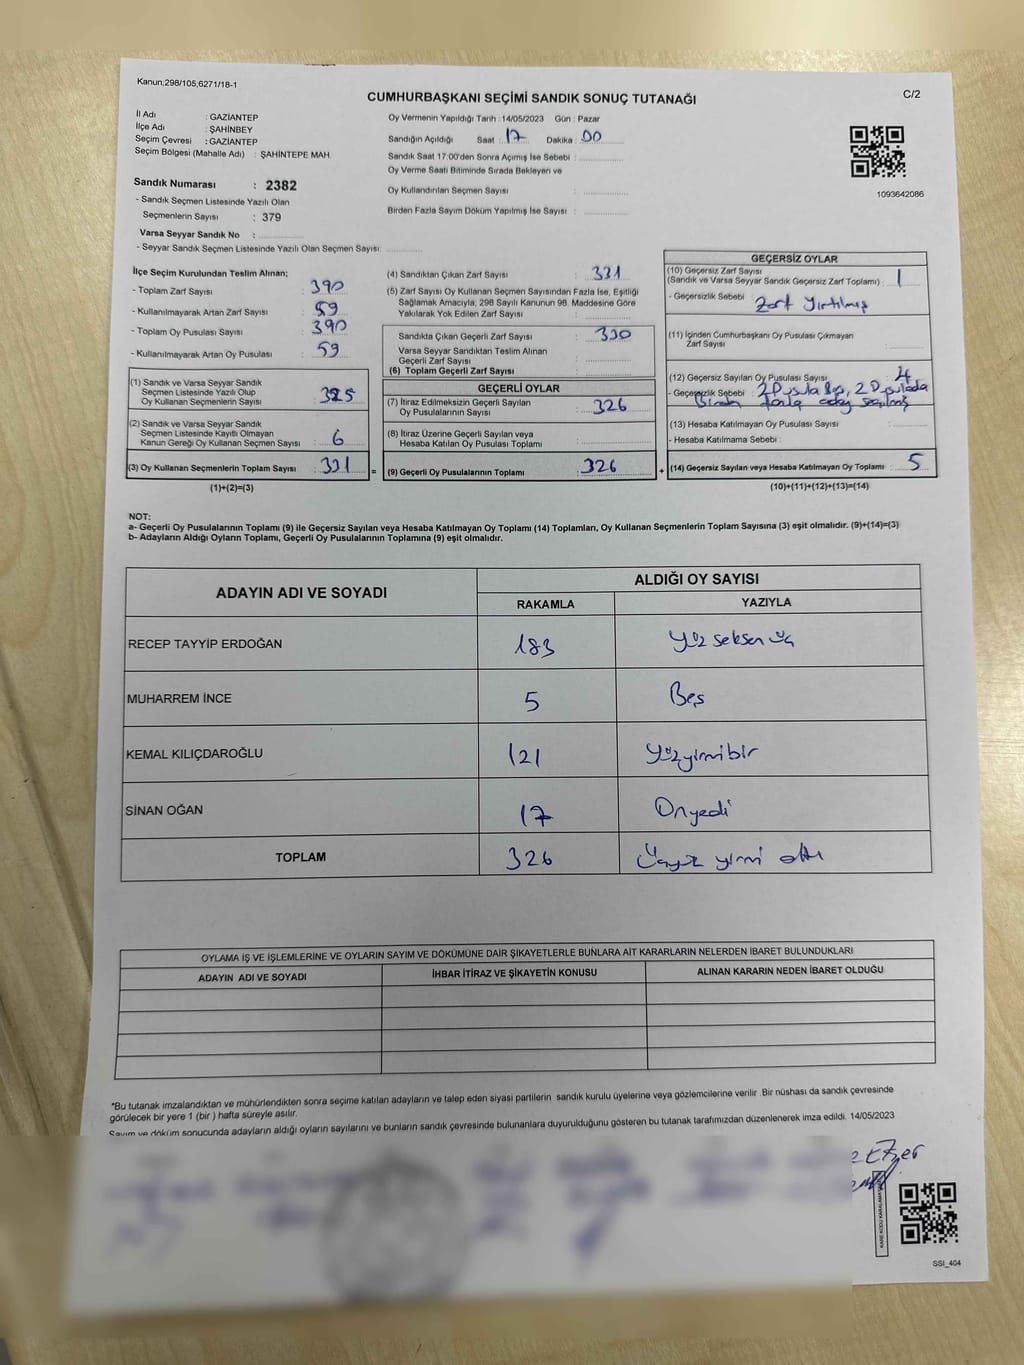 Kanun;298/105,6271/18-1
C/2
CUMHURBAŞKANI SEÇİMİ SANDIK SONUÇ TUTANAĞI
İl Adı : GAZİANTEP
İlçe Adı : ŞAHİNBEY
Seçim Çevresi : GAZİANTEP
Seçim Bölgesi (Mahalle Adı) : ŞAHİNTEPE MAH.
Sandık Numarası : 2382
- Sandık Seçmen Listesinde Yazılı Olan
Seçmenlerin Sayısı : 379
Varsa Seyyar Sandık No :
- Seyyar Sandık Seçmen Listesinde Yazılı Olan Seçmen Sayısı:
Oy Vermenin Yapıldığı Tarih :14/05/2023 Gün : Pazar
Sandığın Açıldığı Saat : 17 Dakika : 00
Sandık Saat 17:00'den Sonra Açımış İse Sebebi :
Oy Verme Saati Bitiminde Sırada Bekleyen ve
Oy Kullandırılan Seçmen Sayısı :
Birden Fazla Sayım Döküm Yapılmış İse Sayısı :
1093642086
İlçe Seçim Kurulundan Teslim Alınan;
- Toplam Zarf Sayısı : 390
- Kullanılmayarak Artan Zarf Sayısı : 59
- Toplam Oy Pusulası Sayısı : 390
- Kullanılmayarak Artan Oy Pusulası : 59
(1) Sandık ve Varsa Seyyar Sandık
Seçmen Listesinde Yazılı Olup
Oy Kullanan Seçmenlerin Sayısı : 325
(2) Sandık ve Varsa Seyyar Sandık
Seçmen Listesinde Kayıtlı Olmayan
Kanun Gereği Oy Kullanan Seçmen Sayısı : 6
(3) Oy Kullanan Seçmenlerin Toplam Sayısı : 331
(1)+(2)=(3)
(4) Sandıktan Çıkan Zarf Sayısı : 331
(5) Zarf Sayısı Oy Kullanan Seçmen Sayısından Fazla İse, Eşitliği
Sağlamak Amacıyla; 298 Sayılı Kanunun 98. Maddesine Göre
Yakılarak Yok Edilen Zarf Sayısı :
Sandıkta Çıkan Geçerli Zarf Sayısı : 330
Varsa Seyyar Sandıktan Teslim Alınan
Geçerli Zarf Sayısı :
(6) Toplam Geçerli Zarf Sayısı :
GEÇERLİ OYLAR
(7) İtiraz Edilmeksizin Geçerli Sayılan
Oy Pusulalarının Sayısı : 326
(8) İtiraz Üzerine Geçerli Sayılan veya
Hesaba Katılan Oy Pusulası Toplamı :
= (9) Geçerli Oy Pusulalarının Toplamı : 326
GEÇERSİZ OYLAR
(10) Geçersiz Zarf Sayısı
(Sandık ve Varsa Seyyar Sandık Geçersiz Zarf Toplamı) : 1
- Geçersizlik Sebebi : Zarf Yırtılmış
(11) İçinden Cumhurbaşkanı Oy Pusulası Çıkmayan
Zarf Sayısı :
(12) Geçersiz Sayılan Oy Pusulası Sayısı : 4
- Geçersizlik Sebebi : 2 Pusula Boş, 2 Pusulada
Birden fazla aday seçilmiş
(13) Hesaba Katılmayan Oy Pusulası Sayısı :
- Hesaba Katılmama Sebebi :
+ (14) Geçersiz Sayılan veya Hesaba Katılmayan Oy Toplamı : 5
(10)+(11)+(12)+(13)=(14)
NOT:
a- Geçerli Oy Pusulalarının Toplamı (9) ile Geçersiz Sayılan veya Hesaba Katılmayan Oy Toplamı (14) Toplamları, Oy Kullanan Seçmenlerin Toplam Sayısına (3) eşit olmalıdır. (9)+(14)=(3)
b- Adayların Aldığı Oyların Toplamı, Geçerli Oy Pusulalarının Toplamına (9) eşit olmalıdır.
ADAYIN ADI VE SOYADI
ALDIĞI OY SAYISI
RAKAMLA YAZIYLA
RECEP TAYYİP ERDOĞAN 183 Yüz seksen üç
MUHARREM İNCE 5 Beş
KEMAL KILIÇDAROĞLU 121 Yüzyirmibir
SİNAN OĞAN 17 Onyedi
TOPLAM 326 Üçyüz yirmi altı
OYLAMA İŞ VE İŞLEMLERİNE VE OYLARIN SAYIM VE DÖKÜMÜNE DAİR ŞİKAYETLERLE BUNLARA AİT KARARLARIN NELERDEN İBARET BULUNDUKLARI
ADAYIN ADI VE SOYADI İHBAR İTİRAZ VE ŞİKAYETİN KONUSU ALINAN KARARIN NEDEN İBARET OLDUĞU
*Bu tutanak imzalandıktan ve mühürlendikten sonra seçime katılan adayların ve talep eden siyasi partilerin sandık kurulu üyelerine veya gözlemcilerine verilir. Bir nüshası da sandık çevresinde
görülecek bir yere 1 (bir ) hafta süreyle asılır.
Sayım ve döküm sonucunda adayların aldığı oyların sayılarını ve bunların sandık çevresinde bulunanlara duyurulduğunu gösteren bu tutanak tarafımızdan düzenlenerek imza edildi. 14/05/2023
SSI_404